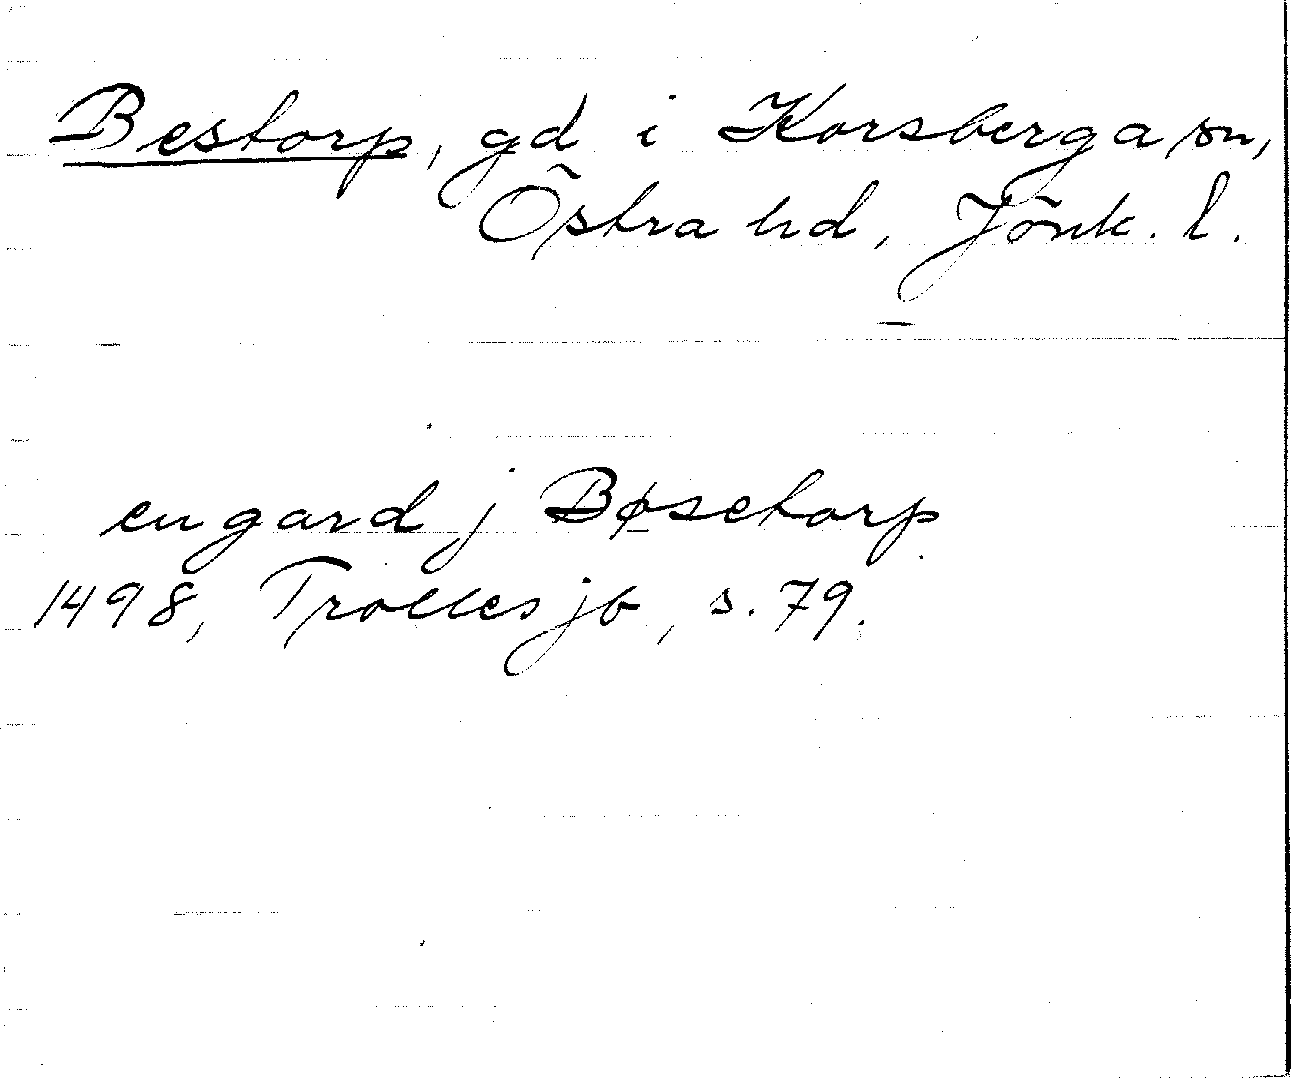 Bestorp, gd i Korsberga sn,
Östra hd, Jönk. l.
en gard j Bøsetorp
1498, Trolles jb, s. 79.